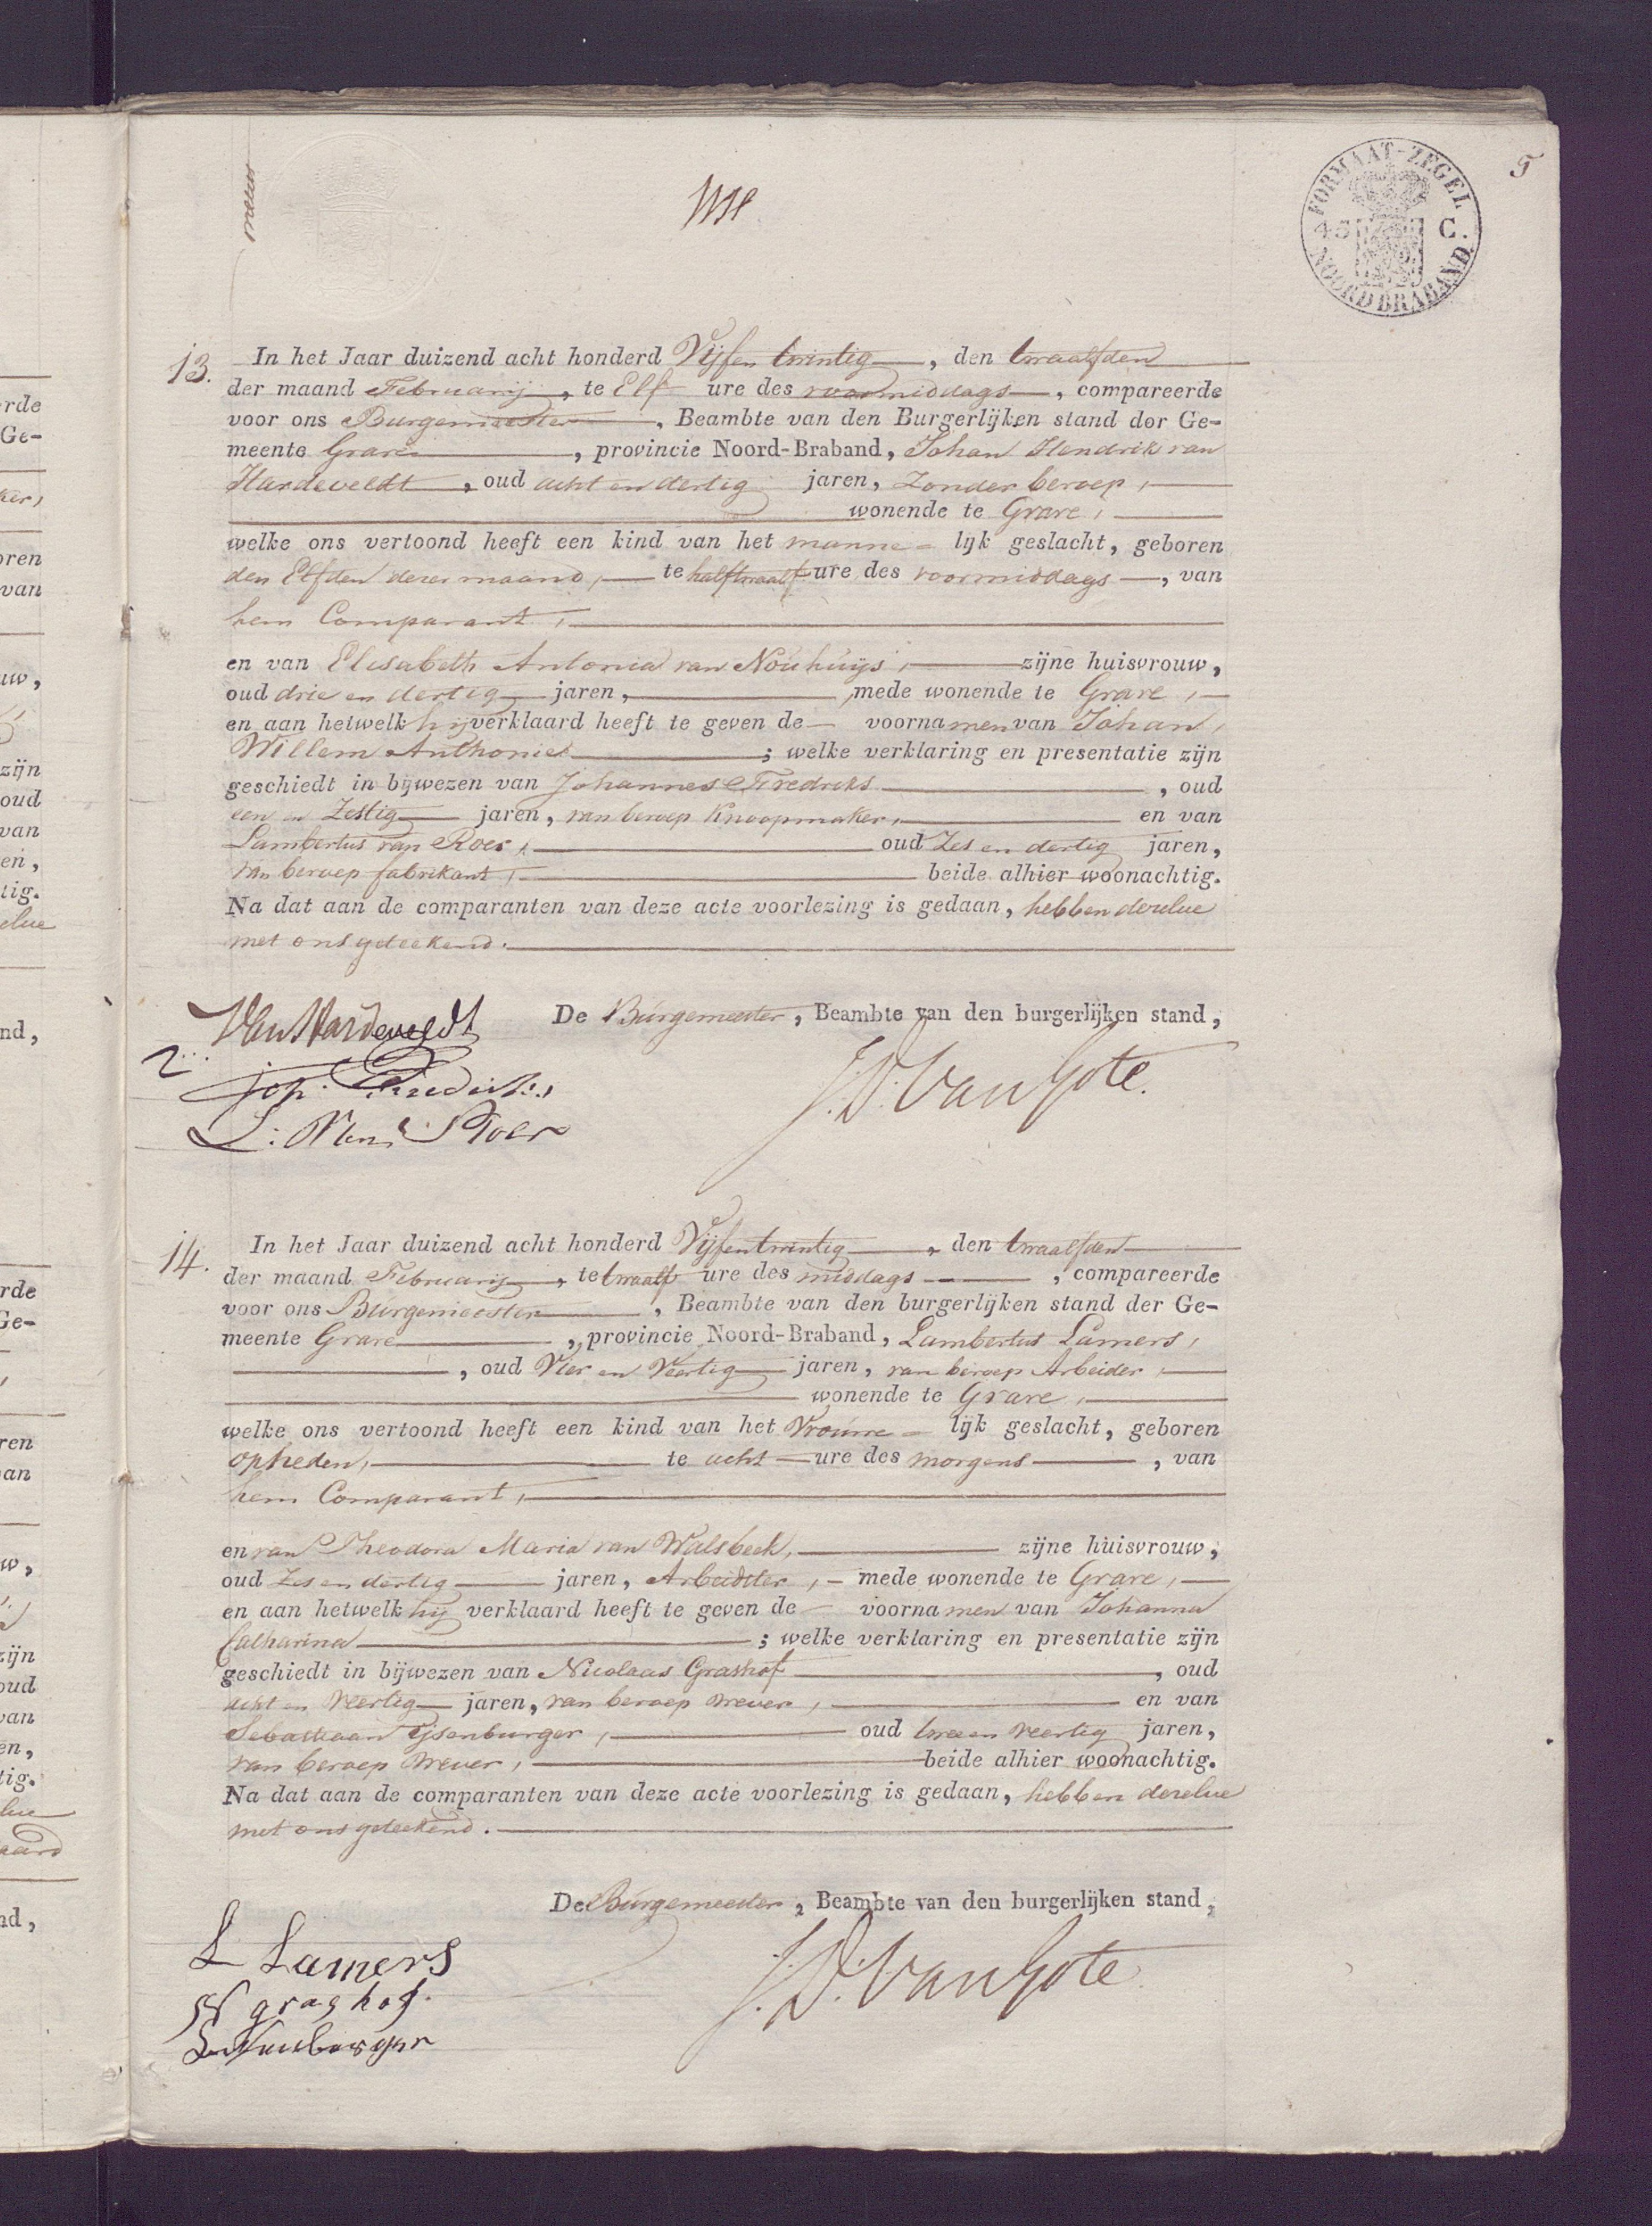 5
FORMAAT-ZEGEL
45 C.
NOORDBRABAND.
13. In het Jaar duizend acht honderd Vijfen twintig, den twaalfden
der maand Februarij, te Elf ure des voormiddags, compareerde
voor ons Burgemeester, Beambte van den Burgerlijken stand der Ge-
meente Grave, provincie Noord-Braband, Johan Hendrik van
Hardeveldt, oud acht en dertig jaren, Zonder beroep,
wonende te Grave,
welke ons vertoond heeft een kind van het manne= lijk geslacht, geboren
den Elfden dezer maand, te half twaalf ure des voormiddags, van
hem Comparant,
en van Elisabeth Antonia van Nouhuijs, zijne huisvrouw,
oud drie en dertig jaren, mede wonende te Grave,
en aan hetwelk hij verklaard heeft te geven de voornamen van Johan,
Willem Anthonie; welke verklaring en presentatie zijn
geschiedt in bijwezen van Johannes Fredriks, oud
een en Zestig jaren, van beroep Knoopmaker, en van
Lambertus van Roer, oud Zes en dertig jaren,
van beroep fabrikant, beide alhier woonachtig.
Na dat aan de comparanten van deze acte voorlezing is gedaan, hebben dezelve
met ons geteekend.
De Burgemeester, Beambte van den burgerlijken stand,
Van Hardeveldt
Joh: Fredriks
L: Van Roer
J. D. Van Gote.
14. In het Jaar duizend acht honderd Vijfentwintig, den twaalfden
der maand Februarij, te twaalf ure des middags, compareerde
voor ons Burgemeester, Beambte van den burgerlijken stand der Ge-
meente Grave, provincie Noord-Braband, Lambertus Lamers,
, oud Vier en Veertig jaren, van beroep Arbeider,
wonende te Grave,
welke ons vertoond heeft een kind van het Vrouwe= lijk geslacht, geboren
opheden, te acht ure des morgens, van
hem Comparant,
en van Theodora Maria van Walsbeek, zijne huisvrouw,
oud Zes en dertig jaren, Arbeidster, mede wonende te Grave,
en aan hetwelk hij verklaard heeft te geven de voornamen van Johanna
Catharina; welke verklaring en presentatie zijn
geschiedt in bijwezen van Nicolaas Grashof, oud
acht en Veertig jaren, van beroep wever, en van
Sebastiaan Ijsenburger, oud twee en Veertig jaren,
van beroep Wever, beide alhier woonachtig.
Na dat aan de comparanten van deze acte voorlezing is gedaan, hebben dezelve
met ons geteekend.
De Burgemeester, Beambte van den burgerlijken stand,
L Lamers
N grashof.
J. D. Van Gote